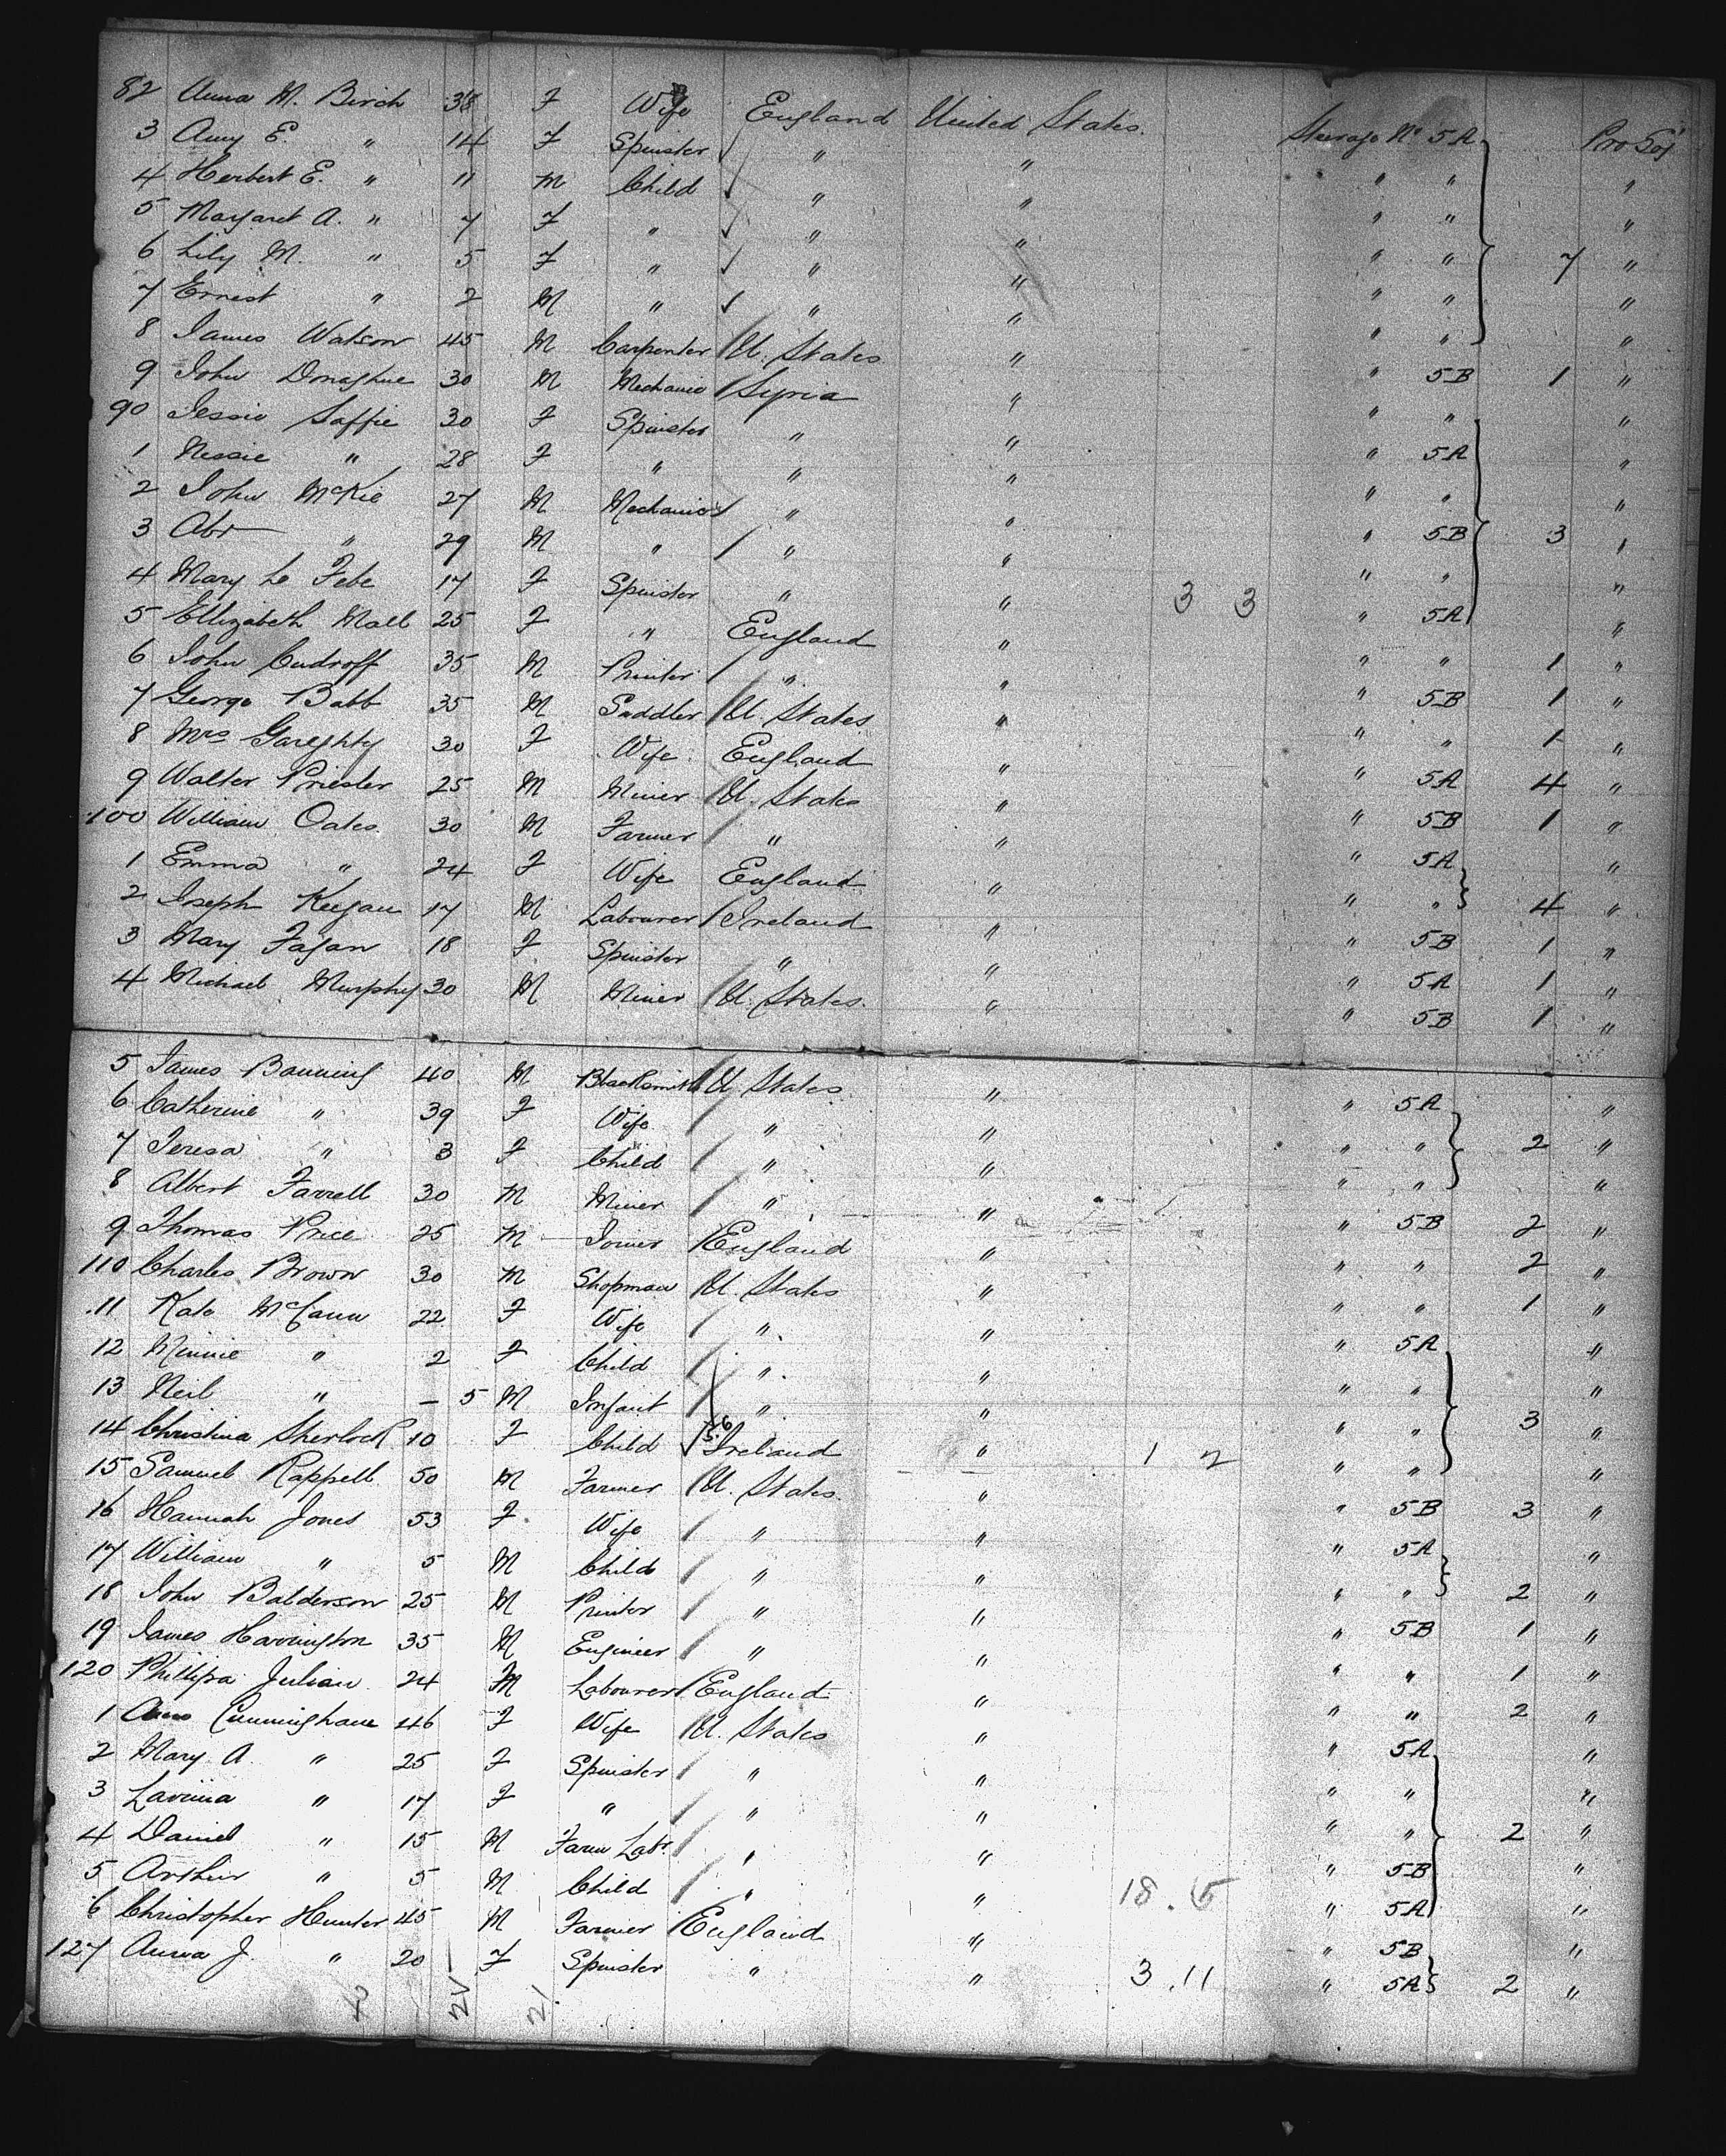 82 Anna M. Birch 38 F Wife England United States. Steerage No 5A
3 Amy E. " 14 F Spinster " " " "
4 Herbert E. " 11 M Child " " " " "
5 Margaret A. " 7 F " " " " " "
6 Lily M. " 5 F " " " " " 7 "
7 Ernest " 2 M " " " " " "
8 James Watson 45 M Carpenter U. States " " 5B 1 "
9 John Donaghue 30 M Mechanic Syria " " " "
90 Jessie Saffie 30 F Spinster " " " 5A "
1 Nessie " 28 F " " " " " "
2 John McKie 27 M Mechanic " " " 5B 3 "
3 Abr " 29 M " " " " " "
4 Mary Le Febe 17 F Spinster " " 3 3 " 5A "
5 Ellizabeth Mall 25 F " England " " " 1 "
6 John Cudroff 35 M Printer " " " 5B 1 "
7 George Babb 35 M Saddler U. States " " " 1 "
8 Mrs Gareghty 30 F Wife England " " 5A 4 "
9 Walter Priester 25 M Miner U. States " " 5B 1 "
100 William Oates 30 M Farmer " " " 5A "
1 Emma " 24 F Wife England " " " 4 "
2 Joseph Keegan 17 M Labourer Ireland " " 5B 1 "
3 Mary Fagan 18 F Spinster " " " 5A 1 "
4 Michael Murphy 30 M Miner U. States. " " 5B 1 "
5 James Banning 40 M Blacksmith U. States " " 5A "
6 Catherine " 39 F Wife " " " " 2 "
7 Teresa " 3 F Child " " " " "
8 Albert Farrell 30 M Miner " " " 5B 2 "
9 Thomas Price 25 M Joiner England " " " 2 "
110 Charles Brown 30 M Shopman U. States " " " 1 "
11 Kate McCann 22 F Wife " " " 5A "
12 Minnie " 2 F Child " " " " "
13 Neil " — 5 M Infant " " " " 3 "
14 Christina Sherlock 10 F Child Ireland " 1 2 " " "
15 Samuel Rappell 50 M Farmer U. States. " " 5B 3 "
16 Hannah Jones 53 F Wife " " " 5A "
17 William " 5 M Child " " " " 2 "
18 John Balderson 25 M Printer " " " 5B 1 "
19 James Harrington 35 M Engineer " " " " 1 "
120 Phillipa Julian 24 M Labourer England " " " 2 "
1 Cunningham 46 F Wife U. States " " 5A "
2 Mary A. " 25 F Spinster " " " " "
3 Lavinia " 17 F " " " " " 2 "
4 Daniel " 15 M Farm Labr " " " 5B "
5 Arthur " 5 M Child " " 18. 5 " 5A "
6 Christopher Hunter 45 M Farmer England " " 5B "
127 Anna J. " 20 F Spinster " " 3.11 " 5A 2 "
21 21